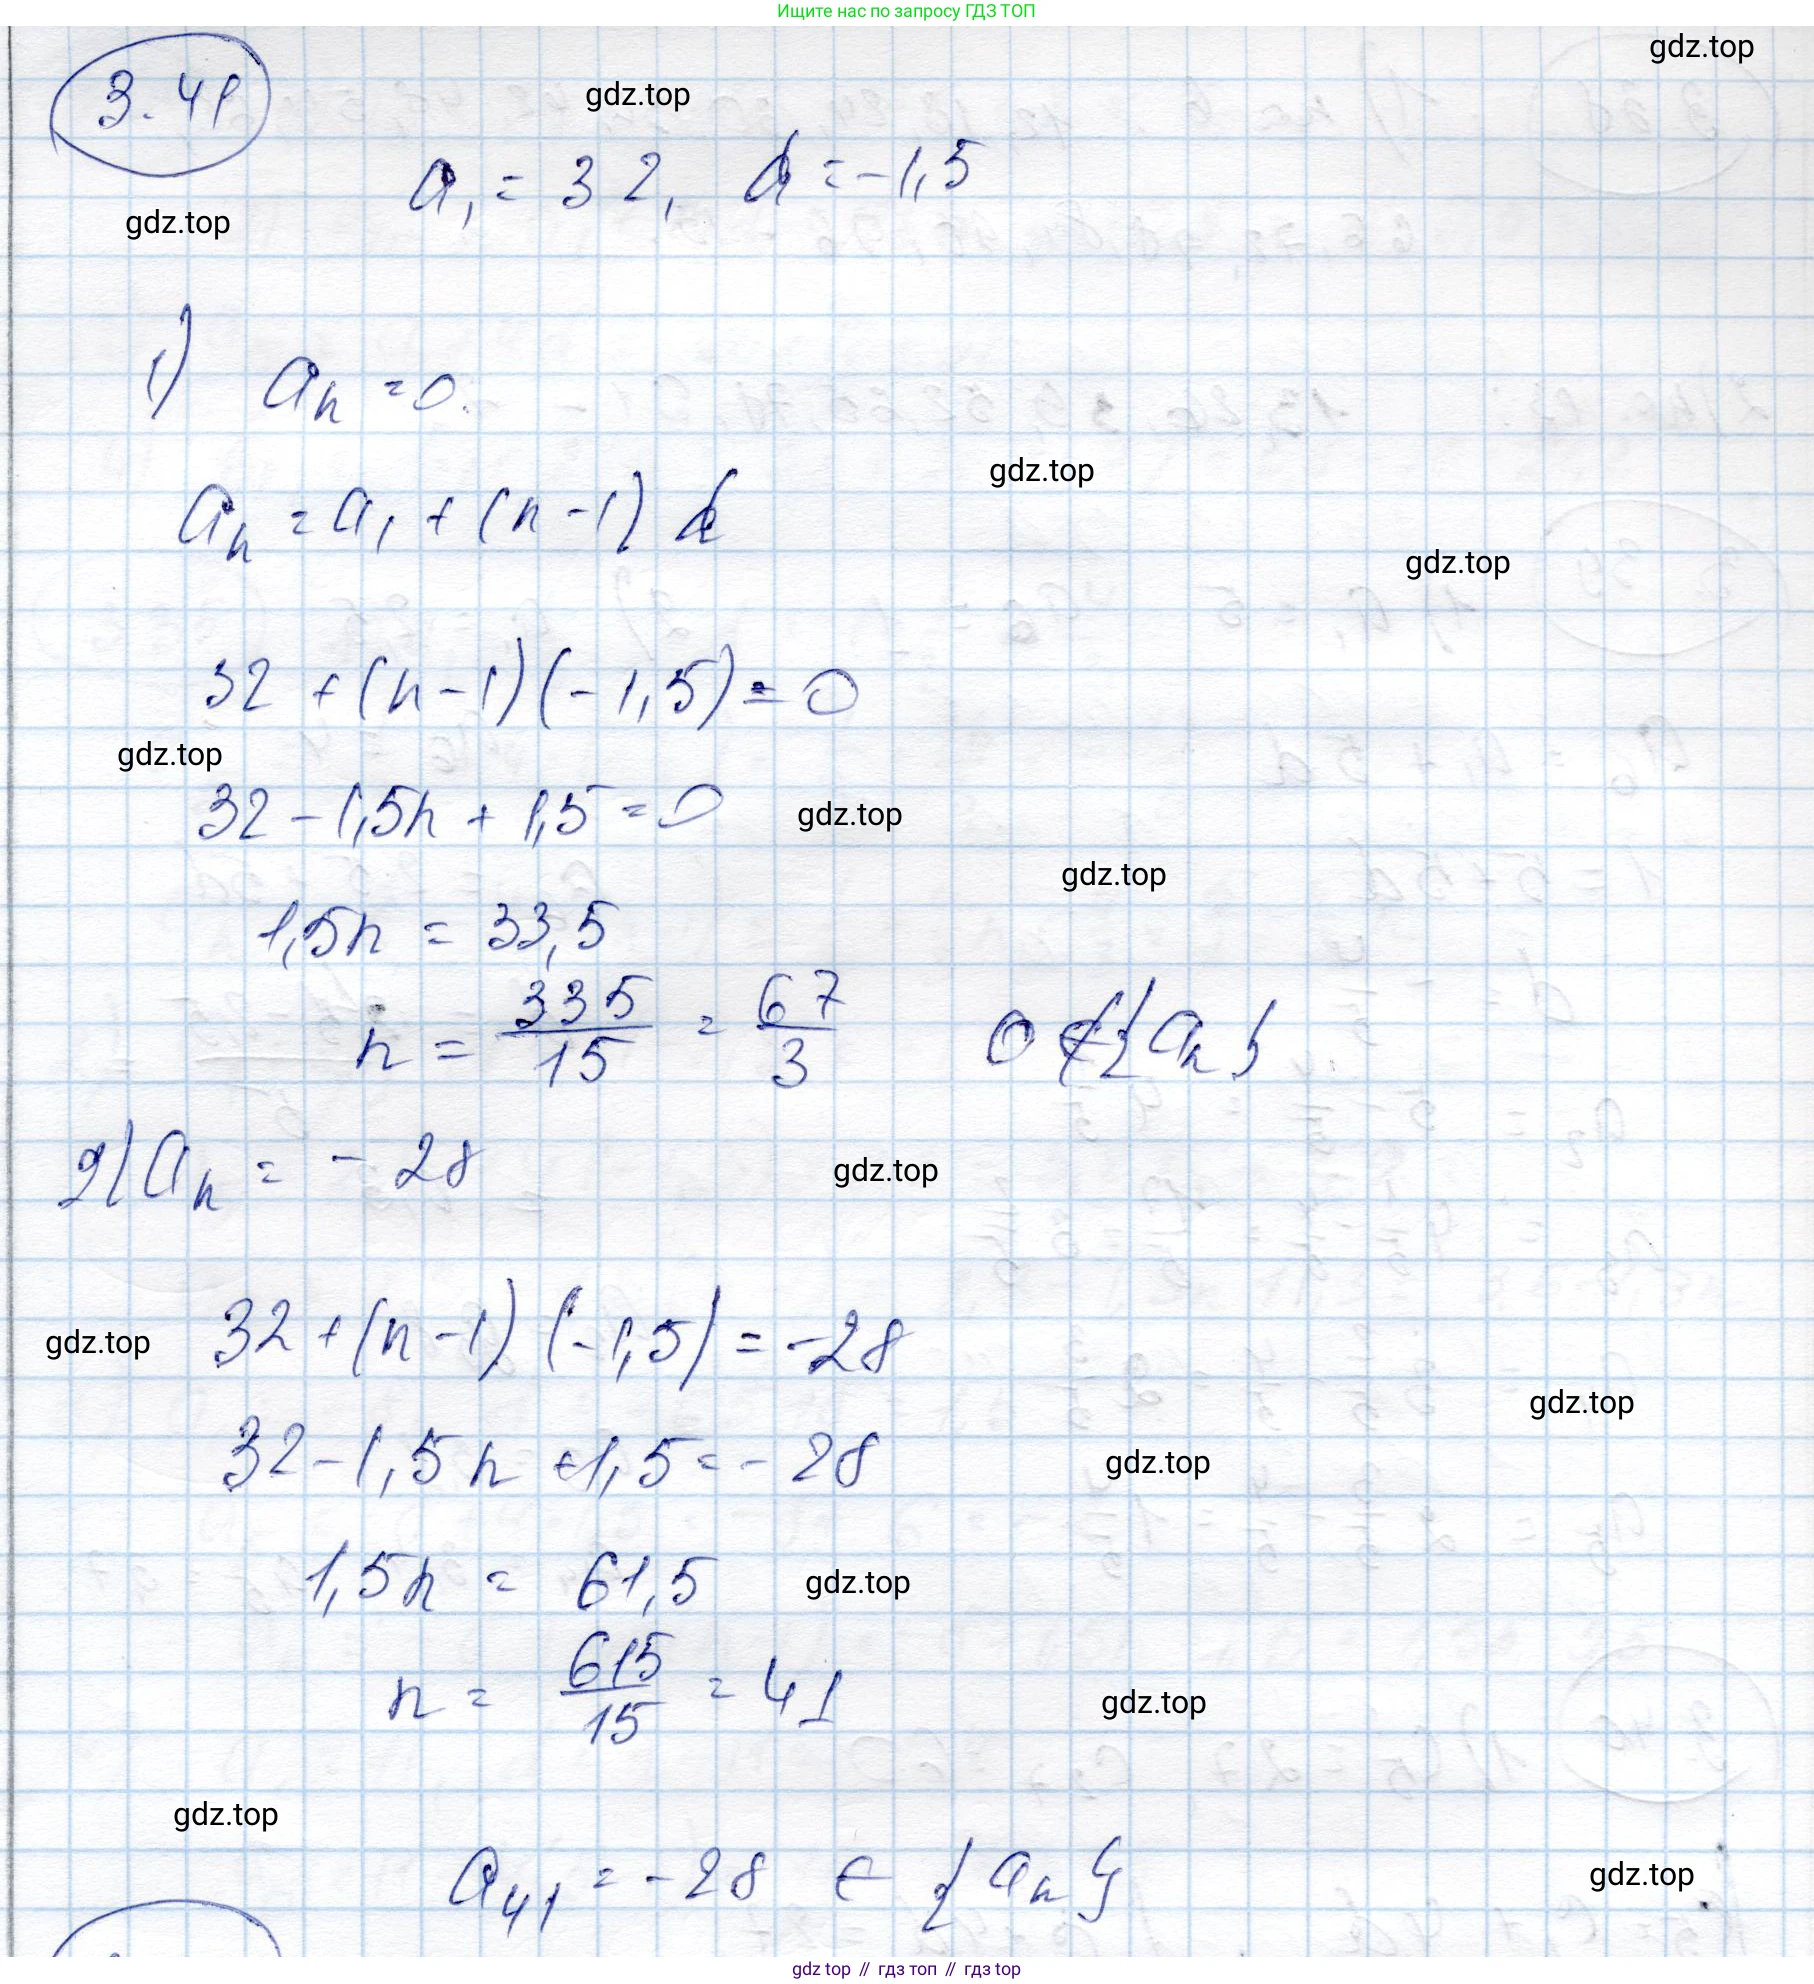 Ищите нас по запросу ГДЗ ТОП
gdz.top
3.41
gdz.top
a₁ = 32, d = -1,5
gdz.top
1) aₙ = 0.
gdz.top
aₙ = a₁ + (n-1) d
gdz.top
32 + (n-1)(-1,5) = 0
gdz.top
32 - 1,5n + 1,5 = 0
gdz.top
gdz.top
1,5n = 33,5
n = 335/15 = 67/3 0 ∉ {aₙ}
2) aₙ = -28
gdz.top
32 + (n-1) (-1,5) = -28
gdz.top
gdz.top
32 - 1,5n + 1,5 = -28
gdz.top
1,5n = 61,5
gdz.top
n = 615/15 = 41
gdz.top
gdz.top
a₄₁ = -28 ∈ {aₙ}
gdz.top
gdz top // гдз топ // гдз top